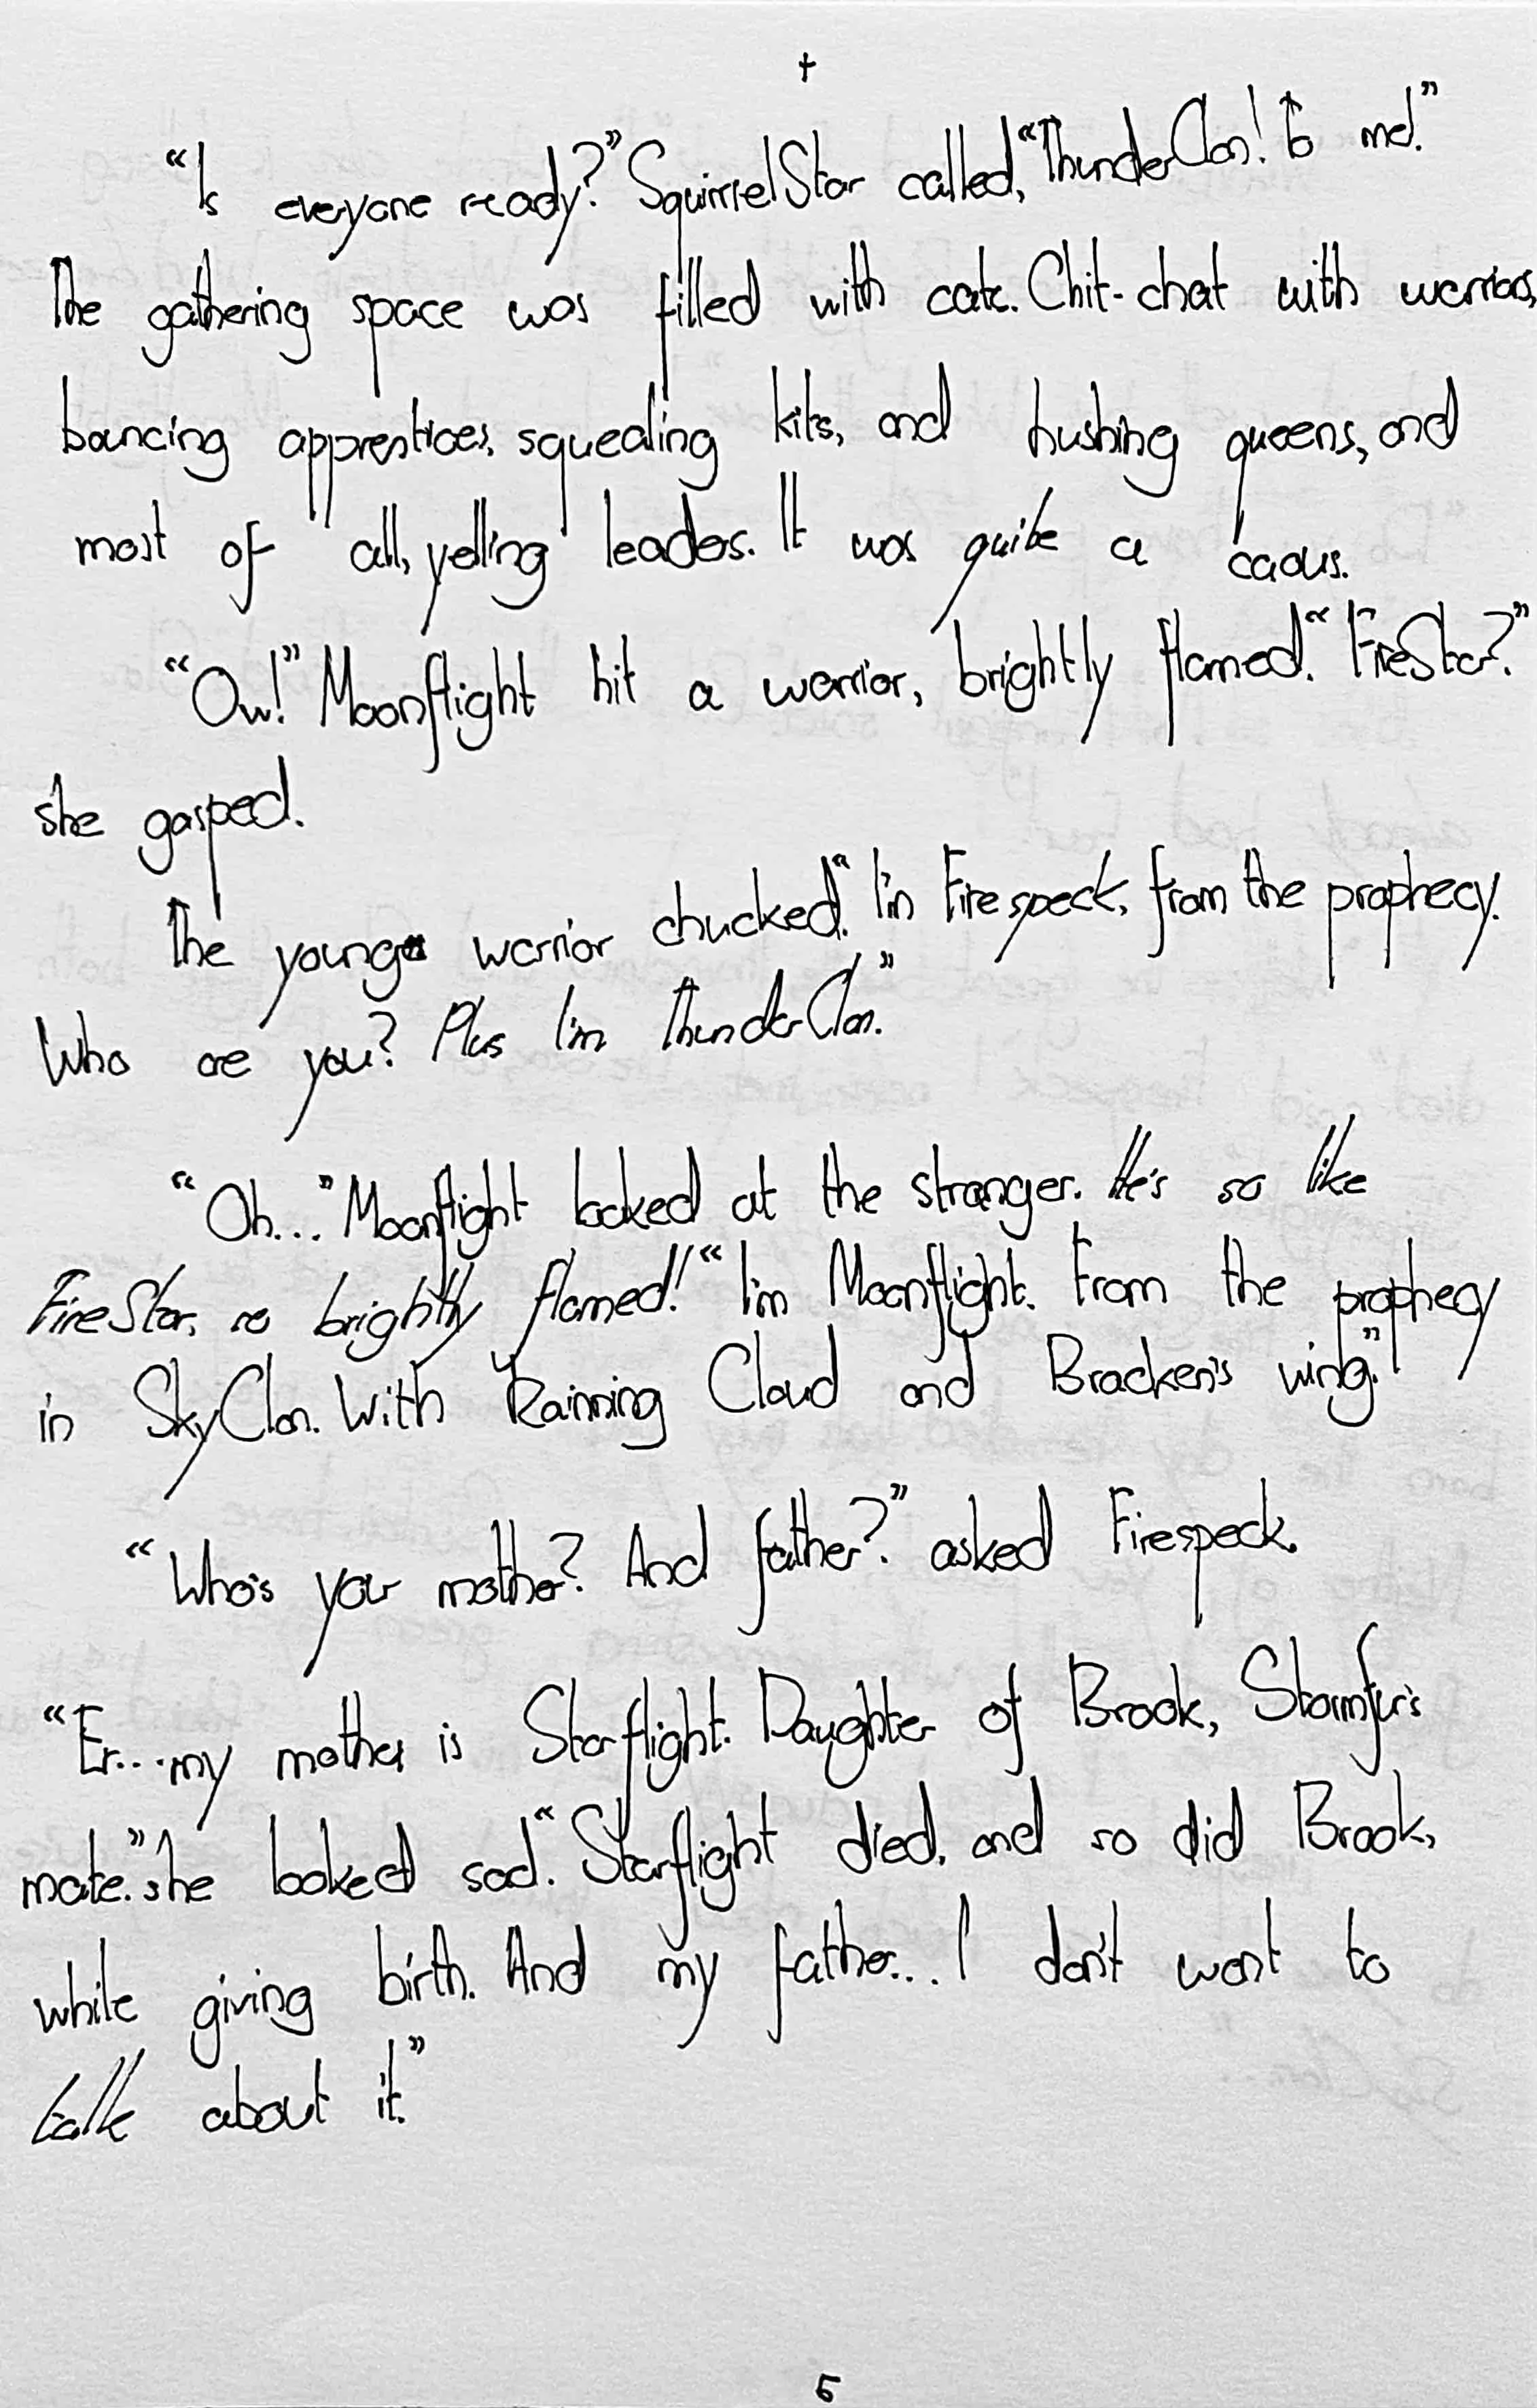 "Is everyone ready?" SquirrelStar called, "ThunderClan! To me!"
The gathering space was filled with cats. Chit-chat with warriors,
bouncing apprentices, squealing kits, and hushing queens, and
most of all, yelling leaders. It was quite a caous.
"Ow!" Moonflight hit a warrior, brightly flamed. "FireStar?"
she gasped.
The young warrior chucked. "I'm Firespeck, from the prophecy.
Who are you? Plus I'm ThunderClan."
"Oh..." Moonflight looked at the stranger. He's so like
FireStar, so brightly flamed! "I'm Moonflight. From the prophecy
in SkyClan. With Raining Cloud and Bracken's wing."
"Who's your mother? And father?" asked Firespeck.
"Er... my mother is Starflight. Daughter of Brook, Stormfur's
mate." she looked sad. "Starflight died, and so did Brook,
while giving birth. And my father... I don't want to
talk about it."
5